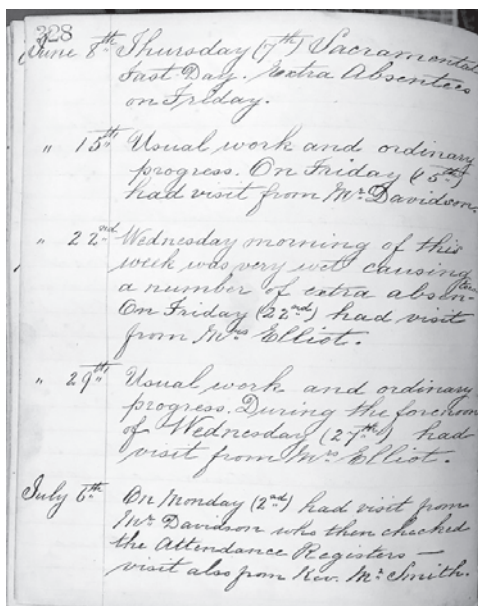 328
June 8th Thursday (7th) Sacramental
Fast Day. Extra Absentees
on Friday.
" 15th Usual work and ordinary
progress. On Friday (15th)
had visit from Mr Davidson.
" 22nd Wednesday morning of this
week was very wet causing
a number of extra absentees.
On Friday (22nd) had visit
from Mrs Elliot.
" 29th Usual work and ordinary
progress. During the forenoon
of Wednesday (27th) had
visit from Mrs Elliot.
July 6th On Monday (2nd) had visit from
Mr Davidson who then checked
the Attendance Registers —
visit also from Rev. Mr Smith.